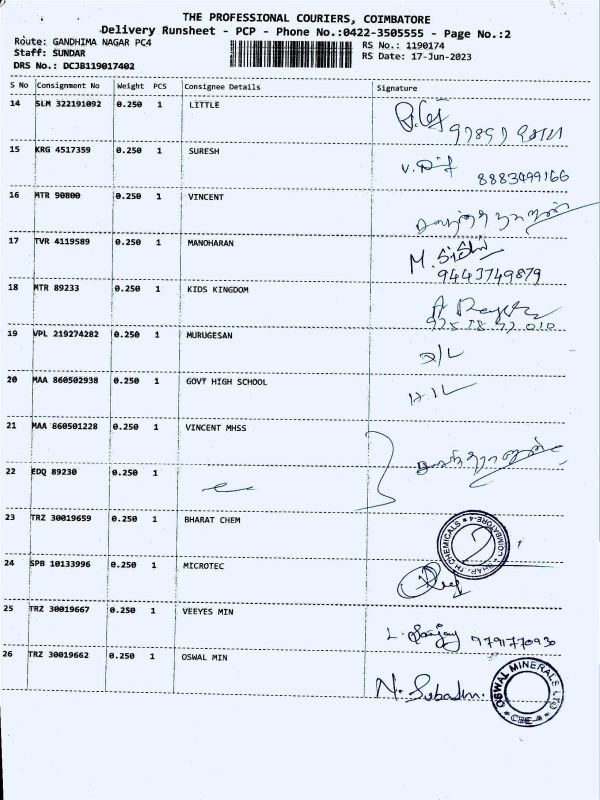 THE PROFESSIONAL COURIERS, COIMBATORE
Delivery Runsheet - PCP - Phone No.:0422-3505555 - Page No.:2
Route: GANDHIMA NAGAR PC4
RS No.: 1190174
Staff: SUNDAR
RS Date: 17-Jun-2023
DRS No.: DCJB119017402
S No Consignment No Weight PCS Consignee Details Signature
14 SLM 322191092 0.250 1 LITTLE
15 KRG 4517359 0.250 1 SURESH
8883499166
16 MTR 90800 0.250 1 VINCENT
17 TVR 4119589 0.250 1 MANOHARAN
9443749879
18 MTR 89233 0.250 1 KIDS KINGDOM
19 VPL 219274282 0.250 1 MURUGESAN
D/L
20 MAA 860502938 0.250 1 GOVT HIGH SCHOOL
21 MAA 860501228 0.250 1 VINCENT MHSS
22 EDQ 89230 0.250 1
23 TRZ 30019659 0.250 1 BHARAT CHEM
24 SPB 10133996 0.250 1 MICROTEC
25 TRZ 30019667 0.250 1 VEEYES MIN
L. Sanjay 9791770930
26 TRZ 30019662 0.250 1 OSWAL MIN
OSWAL MINERALS LTD
CBE-4